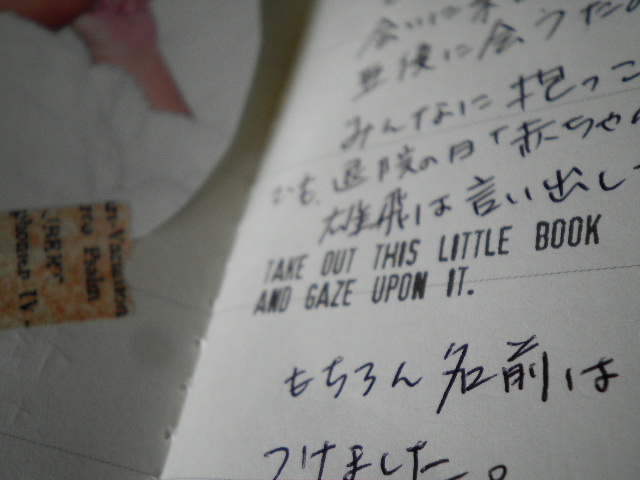 会いに来
最後に会うた
みんなに抱っこ
でも、退院の日で赤ちゃ
雄飛は言い出し
TAKE OUT THIS LITTLE BOOK
AND GAZE UPON IT.
もちろん名前は
つけました。
Variation
Psalm
IV.